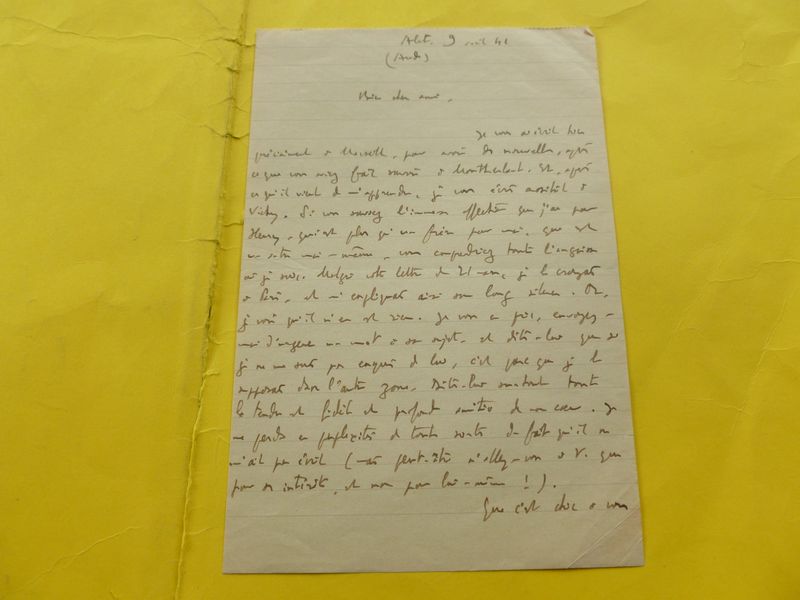 Alet. 9 avril 41
(Aude)
Bien cher ami,
Je vous ai écrit
précisément à Marseille, pour avoir des nouvelles, après
ce que vous avez fait savoir à Montherlant. Et, après
ce qu'il vient de m'apprendre, je vous écris aussitôt à
Vichy. Si vous saviez l'immense affection que j'ai pour
Henry, qui est plus qu'un frère pour moi, que est
un autre moi-même, vous comprendriez toute l'angoisse
où je suis. Malgré votre lettre du 21 mars, je le croyais
à Paris, et m'expliquais ainsi son long silence. Or,
je vois qu'il n'en est rien. Je vous en prie, envoyez-
moi d'urgence un mot à son sujet, et dites-lui que si
je ne me suis pas enquis de lui, c'est parce que je le
supposais dans l'autre zone. Dites-lui surtout toute
la tendre et fidèle et profonde amitié de mon cœur. Je
me perds en perplexités de toute sorte du fait qu'il ne
m'ait pas écrit (mais peut-être n'allez-vous à V. que
pour ses intérêts, et non pour lui-même !).
Que c'est chic à vous